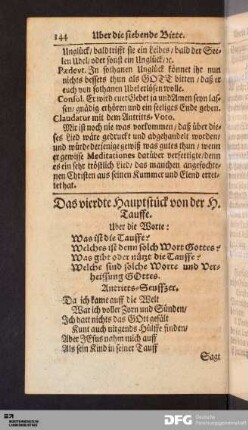 144 Uber die siebende Bitte.
Unglück/ bald trifft sie ein Leibes/ bald der See-
len Übel/ oder sonst ein Unglück/ ꝛc.
Pædevt. In sothanen Unglück könnet ihr nun
nichts bessers thun als GOTT bitten/ daß er
euch von sothanen Übel erlösen wolle.
Consol. Er wird eur Gebet ja und Amen seyn las-
sen/ gnädig erhören und ein seeliges Ende geben.
Clauđatur mit dem Antritts-Voto.
Mir ist noch nie was vorkommen/ daß über die-
ses Lied wäre gedruckt und abgehandelt worden/
und würde derjenige gewiß was gutes thun/ wenn
er gewisse Meditationes darüber verfertigte/ denn
es ein sehr tröstlich Lied/ das manchen angefochte-
nen Christen aus seinen Kummer und Elend erret-
tet hat.
Das vierdte Hauptstück von der H.
Tauffe.
Uber die Worte:
Was ist die Tauffe?
Welches ist denn solch Wort Gottes?
Was gibt oder nützt die Tauffe?
Welche sind solche Worte und Ver-
heissung GOttes.
Antritts-Seuffzer.
Da ich kame auff die Welt
War ich voller Zorn und Sünden/
Ich hatt nichts das GOtt gefält
Kunt auch nirgends Hülffe finden/
Aber JEsus nahm mich auff
Als sein Kind in seiner Tauff
Sagt
DFG Deutsche
Forschungsgemeinschaft